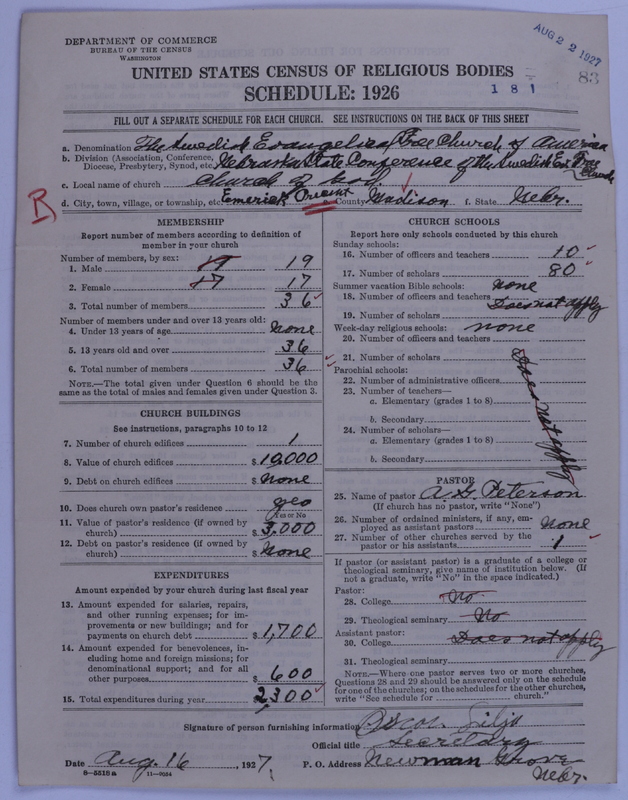 DEPARTMENT OF COMMERCE
BUREAU OF THE CENSUS
WASHINGTON
AUG 22 1927
83
UNITED STATES CENSUS OF RELIGIOUS BODIES
181
SCHEDULE: 1926
FILL OUT A SEPARATE SCHEDULE FOR EACH CHURCH. SEE INSTRUCTIONS ON THE BACK OF THIS SHEET
a. Denomination The Swedish Evangelical Free Church of America
b. Division (Association, Conference, Diocese, Presbytery, Synod, etc. Nebraska State Conference of the Swedish Ev. Free Church
c. Local name of church Church of God
R
d. City, town, village, or township, etc. Emerick Orient e. County Madison f. State Nebr.
MEMBERSHIP
Report number of members according to definition of
member in your church
Number of members, by sex:
1. Male 19 19
2. Female 17 17
3. Total number of members 36
Number of members under and over 13 years old:
4. Under 13 years of age None
5. 13 years old and over 36
6. Total number of members 36
NOTE.—The total given under Question 6 should be the
same as the total of males and females given under Question 3.
CHURCH BUILDINGS
See instructions, paragraphs 10 to 12
7. Number of church edifices 1
8. Value of church edifices $ 10,000
9. Debt on church edifices $ None
10. Does church own pastor's residence yes
Yes or No
11. Value of pastor's residence (if owned by
church) $ 3,000
12. Debt on pastor's residence (if owned by
church) $ None
EXPENDITURES
Amount expended by your church during last fiscal year
13. Amount expended for salaries, repairs,
and other running expenses; for im-
provements or new buildings; and for
payments on church debt $ 1,700
14. Amount expended for benevolences, in-
cluding home and foreign missions; for
denominational support; and for all
other purposes $ 600
15. Total expenditures during year $ 2300
CHURCH SCHOOLS
Report here only schools conducted by this church
Sunday schools:
16. Number of officers and teachers 10
17. Number of scholars 80
Summer vacation Bible schools: None
18. Number of officers and teachers Does not apply
19. Number of scholars
Week-day religious schools: none
20. Number of officers and teachers
21. Number of scholars
Does not apply
Parochial schools:
22. Number of administrative officers
23. Number of teachers—
a. Elementary (grades 1 to 8)
b. Secondary
24. Number of scholars—
a. Elementary (grades 1 to 8)
b. Secondary
PASTOR
25. Name of pastor A. G. Peterson
(If church has no pastor, write "None")
26. Number of ordained ministers, if any, em-
ployed as assistant pastors None
27. Number of other churches served by the
pastor or his assistants 1
If pastor (or assistant pastor) is a graduate of a college or
theological seminary, give name of institution below. (If
not a graduate, write "No" in the space indicated.)
Pastor:
28. College No
29. Theological seminary No
Assistant pastor:
30. College Does not apply
31. Theological seminary
NOTE.—Where one pastor serves two or more churches,
Questions 28 and 29 should be answered only on the schedule
for one of the churches; on the schedules for the other churches,
write "See schedule for church."
Signature of person furnishing information Oscar
Official title Secretary
Date Aug. 16, 1927. P. O. Address Newman Grove
Nebr.
8—5518a 11—9064